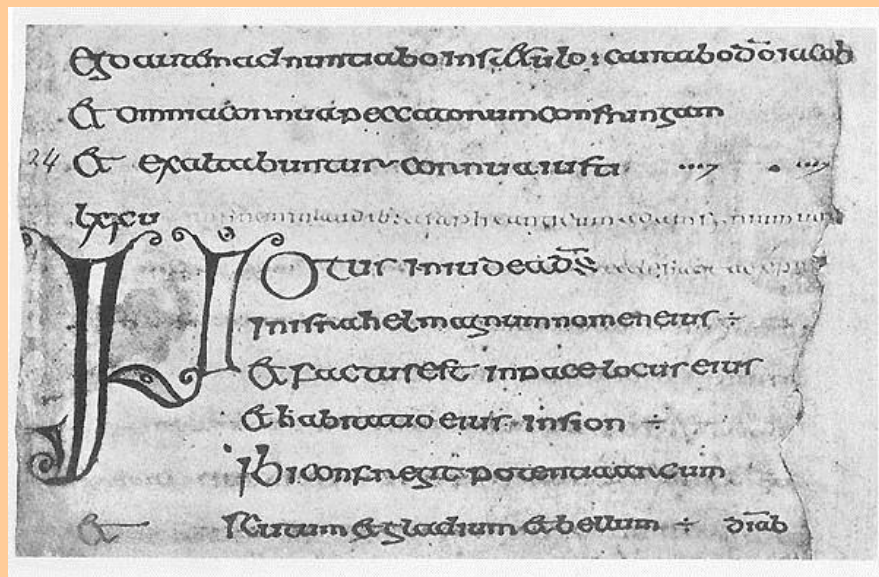 Ego autem adnuntiabo in saeculum cantabo dō iacob
Et omnia cornua peccatorum confringam
24 Et exaltabuntur cornua iusti
lxxu
Notus in iudea dš
in israhel magnum nomen eius ÷
Et factus est in pace locus eius
Et habitatio eius in sion ÷
Ibi confregit potentia arcum
Et scutum et gladium et bellum ÷ diab